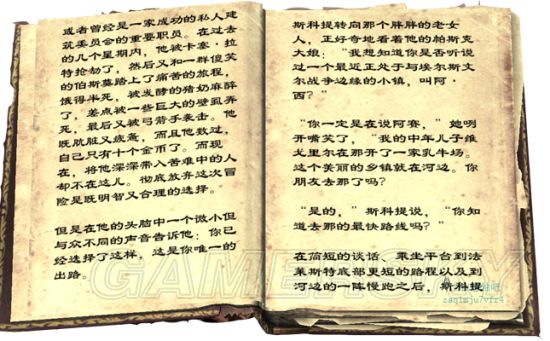 或者曾经是一家成功的私人建
筑委员会的重要职员。在过去
的几个星期内，他被卡塞·拉
特抢劫了，然后又和一群傻笑
的伯斯莫踏上了痛苦的旅程，
饿得半死，被发酵的猪奶麻醉
了，差点被一些巨大的壁虱弄
死，最后又被弓箭手袭击。他
既肮脏又疲惫，而且他数过，
自己只有十个金币了。而现
在，将他深深带入苦难中的人
却不在这儿。彻底放弃这次冒
险是既明智又合理的选择。
但是在他的头脑中一个微小但
与众不同的声音告诉他：你已
经选择了这样，这是你唯一的
出路。
斯科提转向那个胖胖的老女
人，正好奇地看着他的帕斯克
大娘：“我想知道你是否听说
过一个最近正处于与埃尔斯文
尔战争边缘的小镇，叫阿·
西？”
“你一定是在说阿赛，”她咧
开嘴笑了，“我的中年儿子维
戈里尔在那开了一家乳牛场。
这个美丽的乡镇就在河边。你
朋友去那了吗？”
“是的，”斯科提说，“你知
道去那的最快路线吗？”
在简短的谈话、乘坐平台到法
莱斯特底部更短的路程以及到
河边的一阵慢跑之后，斯科提
GAMERSKY
zaq1mju7vfr4